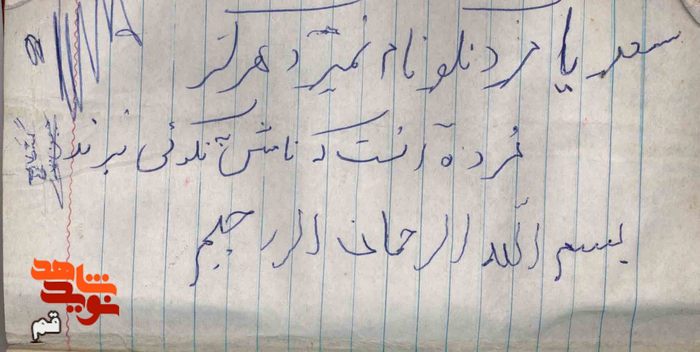 سعدیا مرد نکو نام نمیرد هرگز
مرده آنست که نامش به نکوئی نبرند
بسم الله الرحمان الرحیم
نوید شاهد
قم